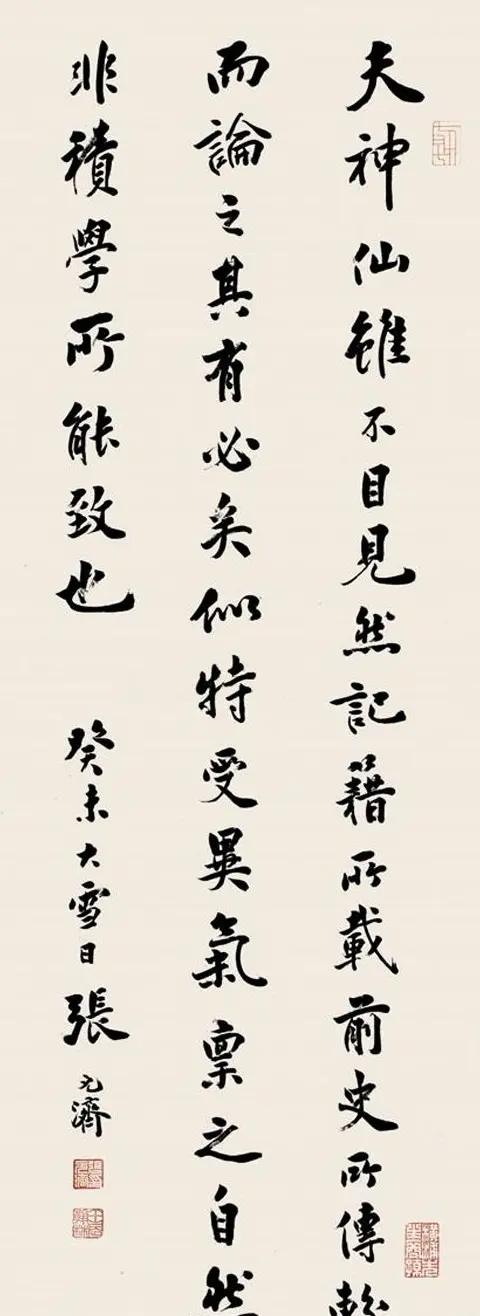 夫神仙雖不目見然記籍所載前史所傳較
而論之其有必矣似特受異氣禀之自然
非積學所能致也
癸未大雪日張元濟